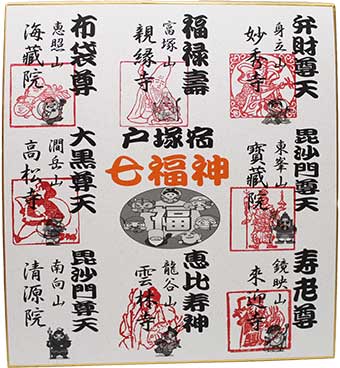 弁財尊天
身立山
妙秀寺
福禄壽
富塚山
親縁寺
布袋尊
恵照山
海藏院
毘沙門尊天
東峯山
寳藏院
戸塚宿
七福神
福
大黒尊天
澗岳山
高松寺
寿老尊
鏡映山
来迎寺
恵比寿神
龍谷山
雲林寺
毘沙門尊天
南向山
清源院